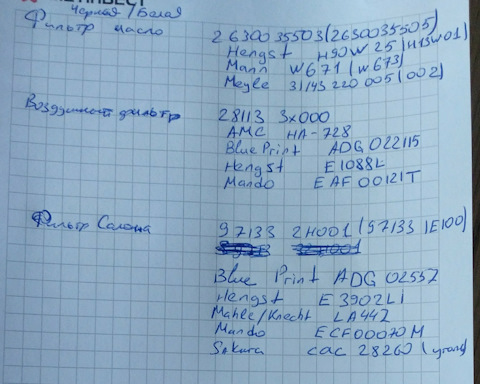 Черная / Белая
Фильтр масло 2630035503 (2630035505)
Hengst H90W25 (H13W01)
Mann W671 (W673)
Meyle 31/43 220 005 (002)
Воздушный фильтр 28113 3x000
AMC HA-728
Blue Print ADG 022115
Hengst E1088L
Mando EAF00121T
Фильтр Салона 97133 2H001 (97133 1E100)
Blue Print ADG 02557
Hengst E3902Li
Mahle/Knecht LA442
Mando ECF00070M
Sakura cac 28260 (